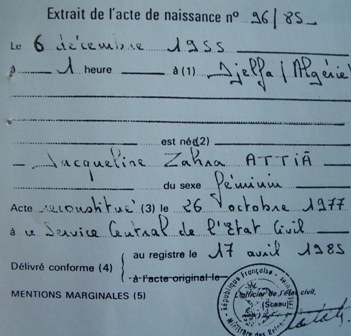 Extrait de l'acte de naissance nº 96/85
Le 6 décembre 1955
à 1 heure à (1) Djelfa (Algérie)
est né(2)
Jacqueline Zahra ATTIA
du sexe féminin
Acte reconstitué (3) le 26 octobre 1977
à u Service Central de l'Etat Civil
au registre le 17 avril 1985
Délivré conforme (4)
à l'acte original le
MENTIONS MARGINALES (5)
L'officier de l'état civil,
(Sceau)
République Française